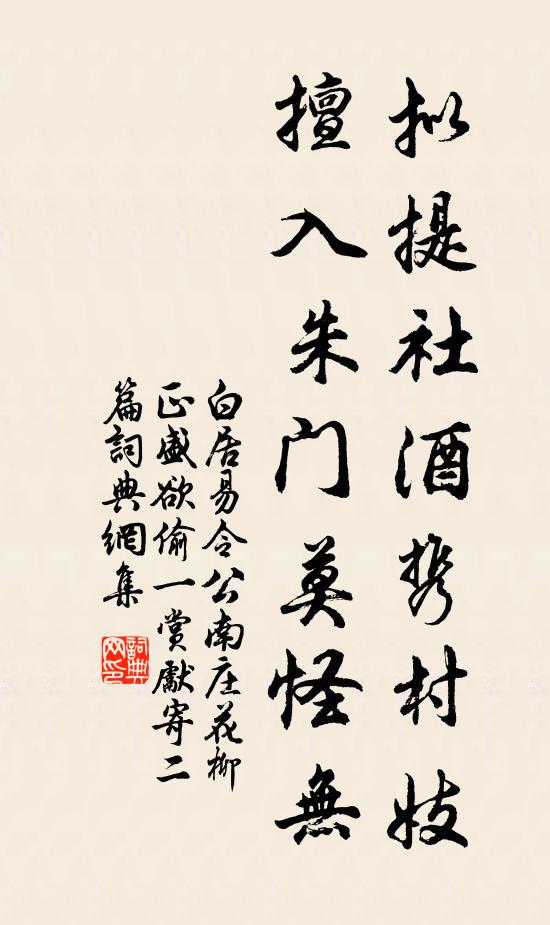 拟提社酒携村妓
擅入朱门莫怪無
白居易令公南庄花柳
正盛欲偷一赏獻寄二
篇詞典網集
詞典
网印